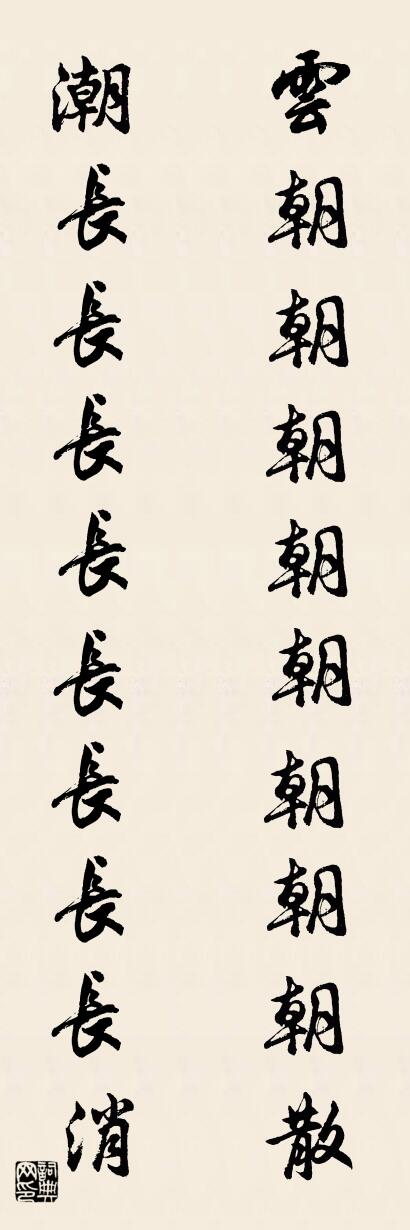 雲朝朝朝朝朝朝朝朝散
潮長長長長長長長長消